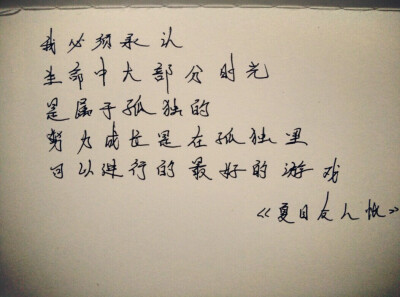 我必须承认
生命中大部分时光
是属于孤独的
努力成长是在孤独里
可以进行的最好的游戏
《夏目友人帐》